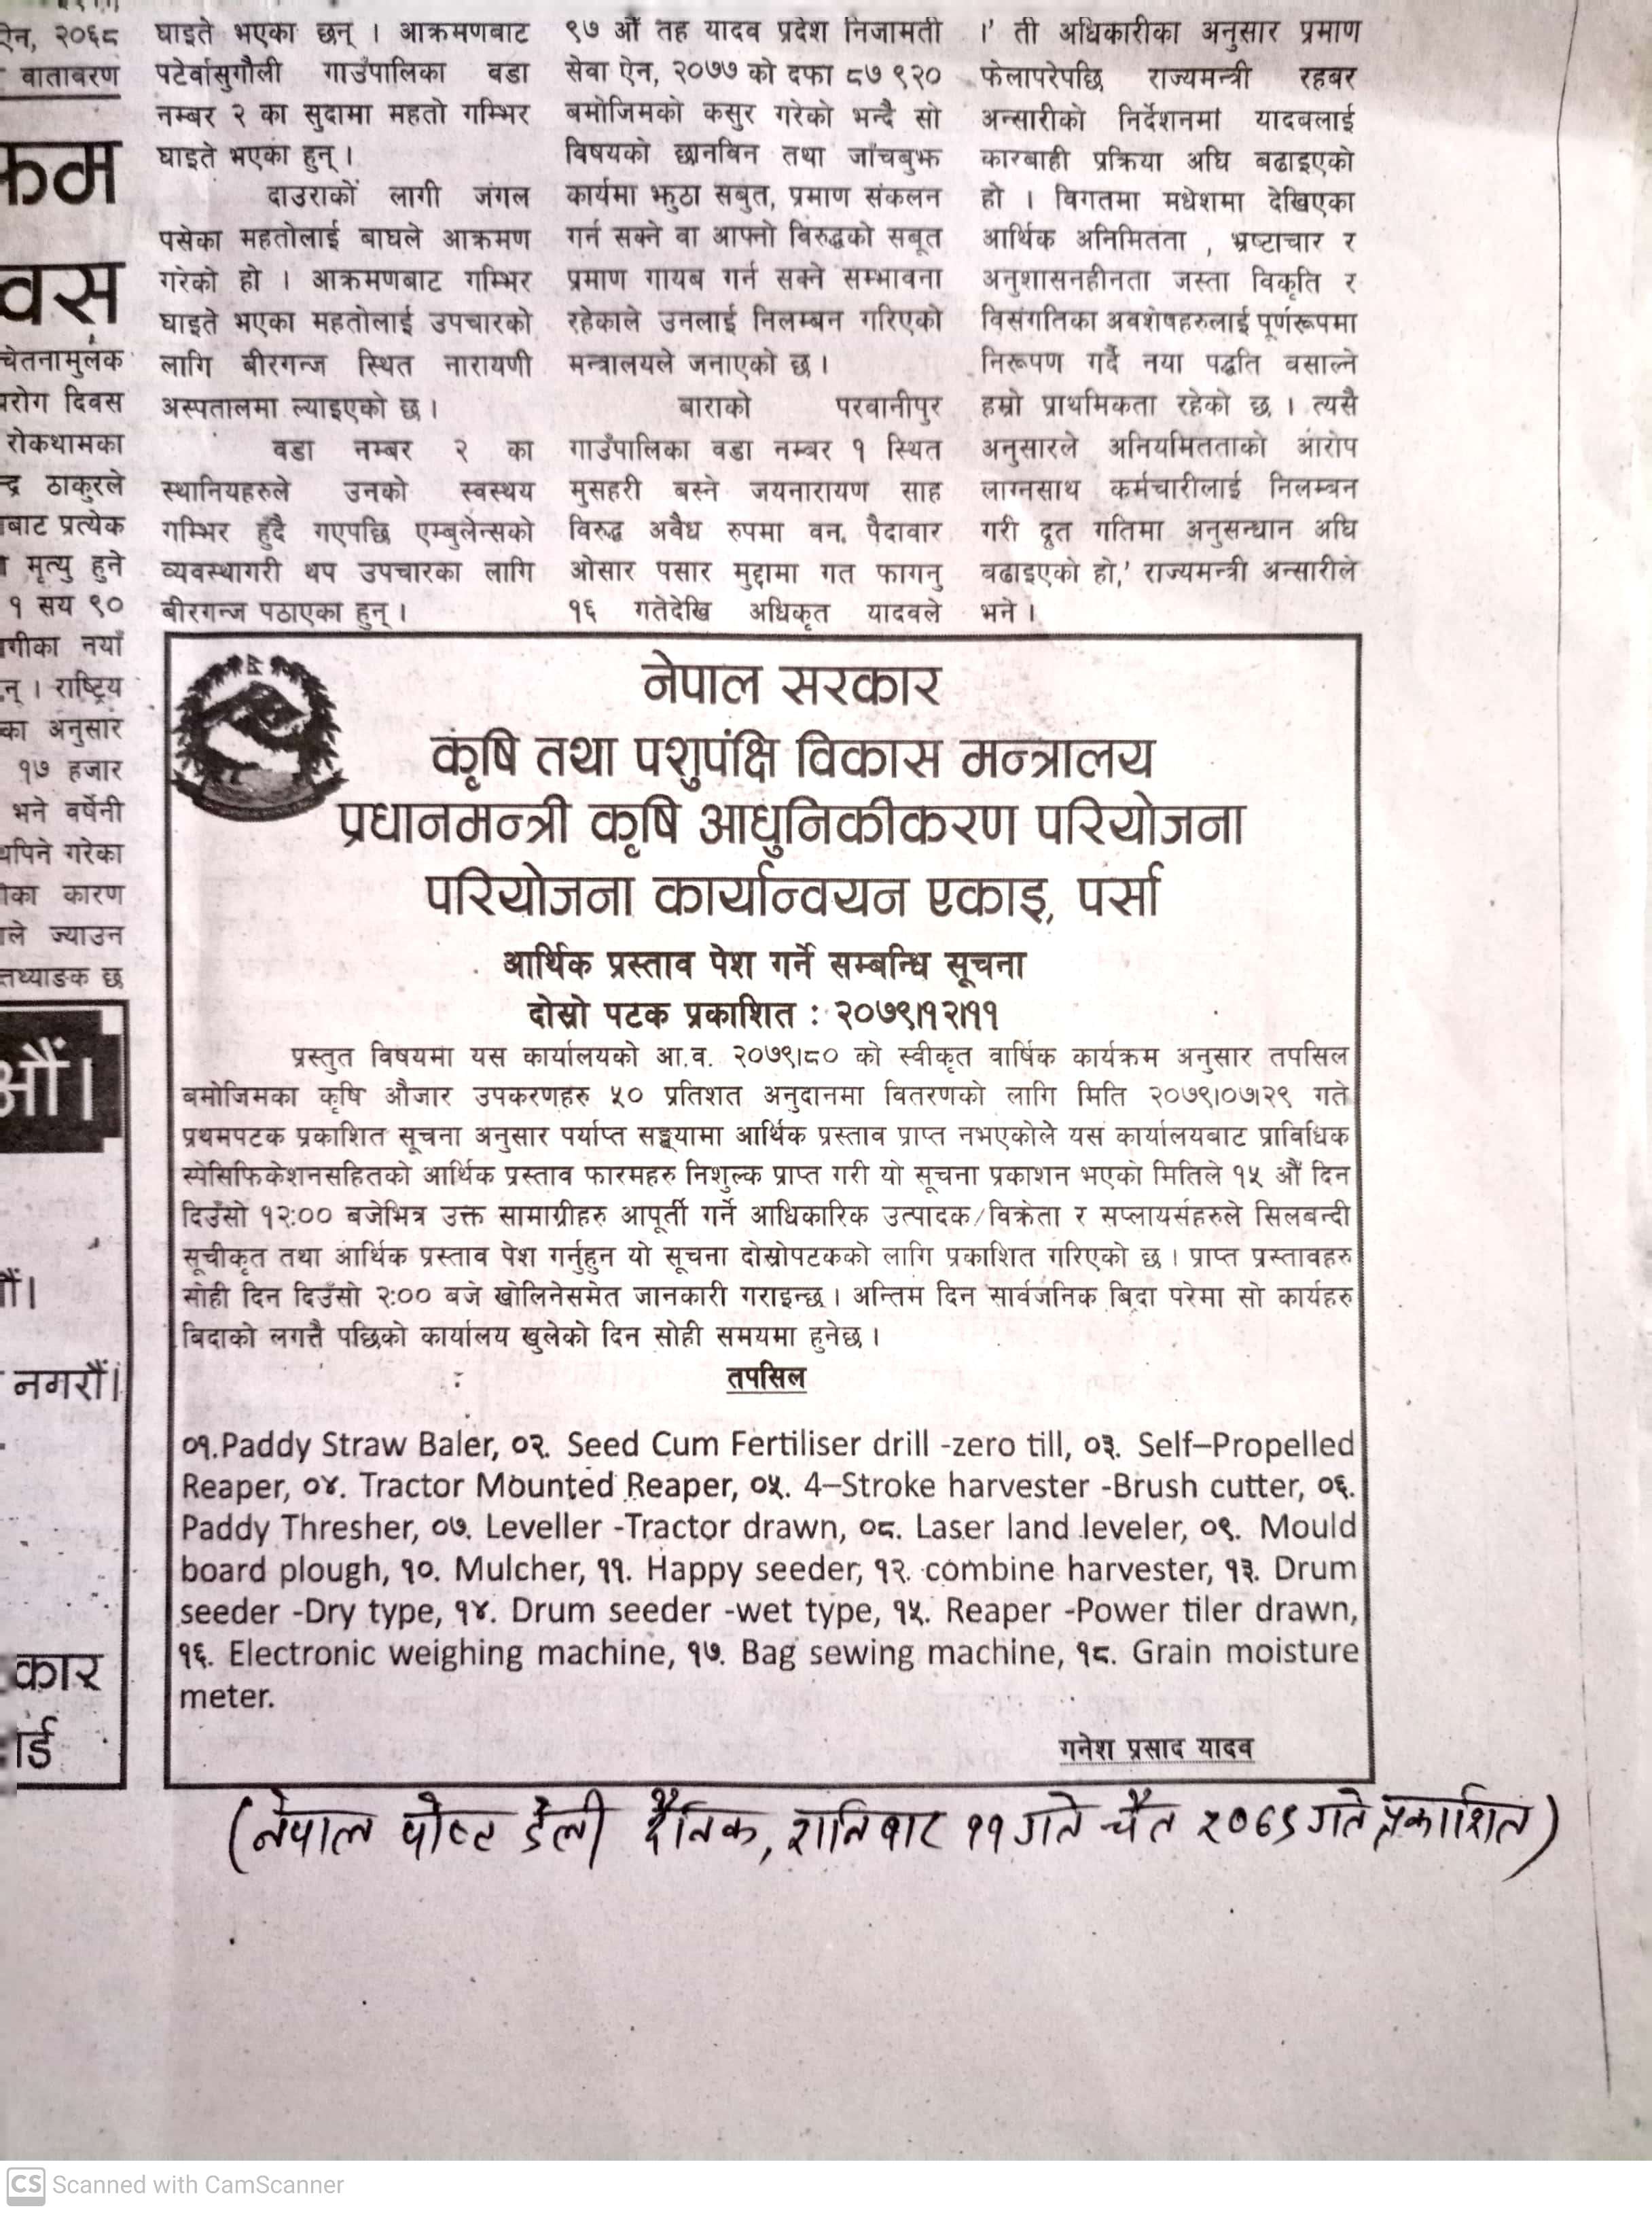 ऐन, २०६८
वातावरण
चेतनामुलक
रोग दिवस
रोकथामका
ठाकुरले
बाट प्रत्येक
मृत्यु हुने
१ सय ९०
नयाँ
राष्ट्रिय
का अनुसार
१७ हजार
भने वर्षेनी
गरेका
कारण
ले ज्याउन
तथ्याङक छ
औं।
नगरौं।
कार
घाइते भएका छन् । आक्रमणबाट
पटेर्वासुगौली गाउँपालिका वडा
नम्बर २ का सुदामा महतो गम्भिर
घाइते भएका हुन् ।
दाउराकों लागी जंगल
पसेका महतोलाई बाघले आक्रमण
गरेको हो । आक्रमणबाट गम्भिर
घाइते भएका महतोलाई उपचारको
लागि बीरगन्ज स्थित नारायणी
अस्पतालमा ल्याइएको छ ।
वडा नम्बर २ का
स्थानियहरुले उनको स्वस्थय
गम्भिर हुँदै गएपछि एम्बुलेन्सको
व्यवस्थागरी थप उपचारका लागि
बीरगन्ज पठाएका हुन् ।
९७ औं तह यादव प्रदेश निजामती
सेवा ऐन, २०७७ को दफा ८७ ९२०
बमोजिमको कसुर गरेको भन्दै सो
विषयको छानविन तथा जाँचबुझ
कार्यमा झुठा सबुत, प्रमाण संकलन
गर्न सक्ने वा आफ्नो विरुद्धको सबूत
प्रमाण गायब गर्न सक्ने सम्भावना
रहेकाले उनलाई निलम्बन गरिएको
मन्त्रालयले जनाएको छ ।
बाराको परवानीपुर
गाउँपालिका वडा नम्बर १ स्थित
मुसहरी बस्ने जयनारायण साह
विरुद्ध अवैध रुपमा वन, पैदावार
ओसार पसार मुद्दामा गत फागनु
१६ गतेदेखि अधिकृत यादवले
।’ ती अधिकारीका अनुसार प्रमाण
फेलापरेपछि राज्यमन्त्री रहबर
अन्सारीको निर्देशनमा यादबलाई
कारबाही प्रक्रिया अघि बढाइएको
हो । विगतमा मधेशमा देखिएका
आर्थिक अनिमितता , भ्रष्टाचार र
अनुशासनहीनता जस्ता विकृति र
विसंगतिका अवशेषहरुलाई पूर्णरूपमा
निरूपण गर्दै नया पद्धति वसाल्ने
हम्रो प्राथमिकता रहेको छ । त्यसै
अनुसारले अनियमितताको आरोप
लाग्नसाथ कर्मचारीलाई निलम्बन
गरी द्रुत गतिमा अनुसन्धान अघि
बढाइएको हो,’ राज्यमन्त्री अन्सारीले
भने ।
नेपाल सरकार
कृषि तथा पशुपंक्षि विकास मन्त्रालय
प्रधानमन्त्री कृषि आधुनिकीकरण परियोजना
परियोजना कार्यान्वयन एकाइ, पर्सा
आर्थिक प्रस्ताव पेश गर्ने सम्बन्धि सूचना
दोस्रो पटक प्रकाशित : २०७९।१२।११
प्रस्तुत विषयमा यस कार्यालयको आ.व. २०७९।८० को स्वीकृत वार्षिक कार्यक्रम अनुसार तपसिल
बमोजिमका कृषि औजार उपकरणहरु ५० प्रतिशत अनुदानमा वितरणको लागि मिति २०७९।०७।२९ गते
प्रथमपटक प्रकाशित सूचना अनुसार पर्याप्त सङ्ख्यामा आर्थिक प्रस्ताव प्राप्त नभएकोले यस कार्यालयबाट प्राविधिक
स्पेसिफिकेशनसहितको आर्थिक प्रस्ताव फारमहरु निशुल्क प्राप्त गरी यो सूचना प्रकाशन भएको मितिले १५ औं दिन
दिउँसो १२:०० बजेभित्र उक्त सामाग्रीहरु आपूर्ती गर्ने आधिकारिक उत्पादक/विक्रेता र सप्लायर्सहरुले सिलबन्दी
सूचीकृत तथा आर्थिक प्रस्ताव पेश गर्नुहुन यो सूचना दोस्रोपटकको लागि प्रकाशित गरिएको छ । प्राप्त प्रस्तावहरु
सोही दिन दिउँसो २:०० बजे खोलिनेसमेत जानकारी गराइन्छ । अन्तिम दिन सार्वजनिक बिदा परेमा सो कार्यहरु
बिदाको लगत्तै पछिको कार्यालय खुलेको दिन सोही समयमा हुनेछ ।
तपसिल
०१.Paddy Straw Baler, ०२. Seed Cum Fertiliser drill -zero till, ०३. Self–Propelled
Reaper, ०४. Tractor Mounted Reaper, ०५. 4–Stroke harvester -Brush cutter, ०६.
Paddy Thresher, ०७. Leveller -Tractor drawn, ०८. Laser land leveler, ०९. Mould
board plough, १०. Mulcher, ११. Happy seeder, १२. combine harvester, १३. Drum
seeder -Dry type, १४. Drum seeder -wet type, १५. Reaper -Power tiler drawn,
१६. Electronic weighing machine, १७. Bag sewing machine, १८. Grain moisture
meter.
गनेश प्रसाद यादव
(नेपाल पोष्ट डेली दैनिक, शनिबार ११ गते चैत २०७९ गते प्रकाशित)
CS Scanned with CamScanner